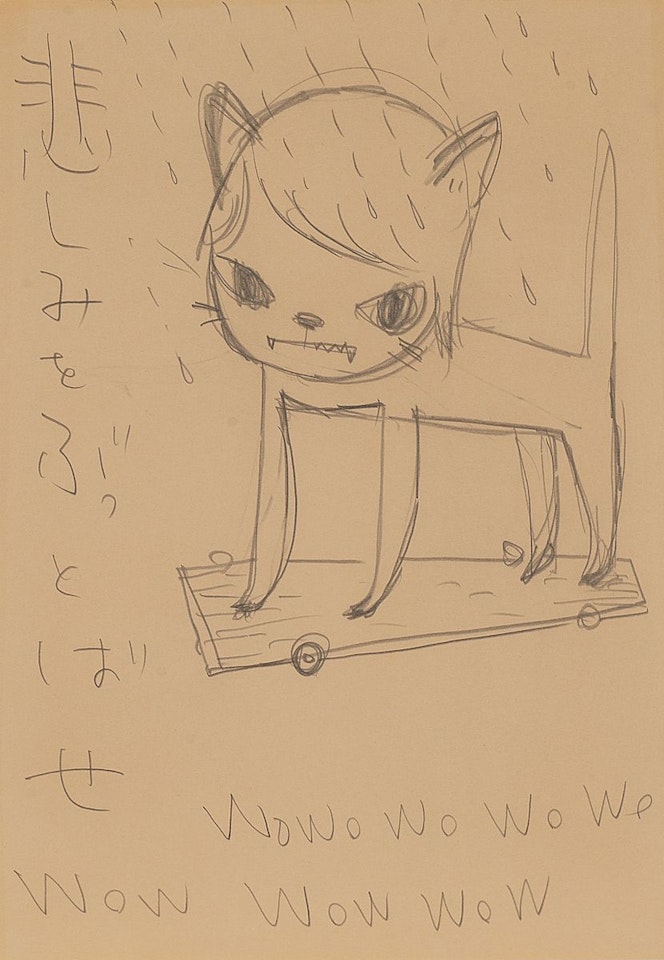 悲しみをぶっとばせ
WoWo Wo Wo Wo
WoW WoW WoW